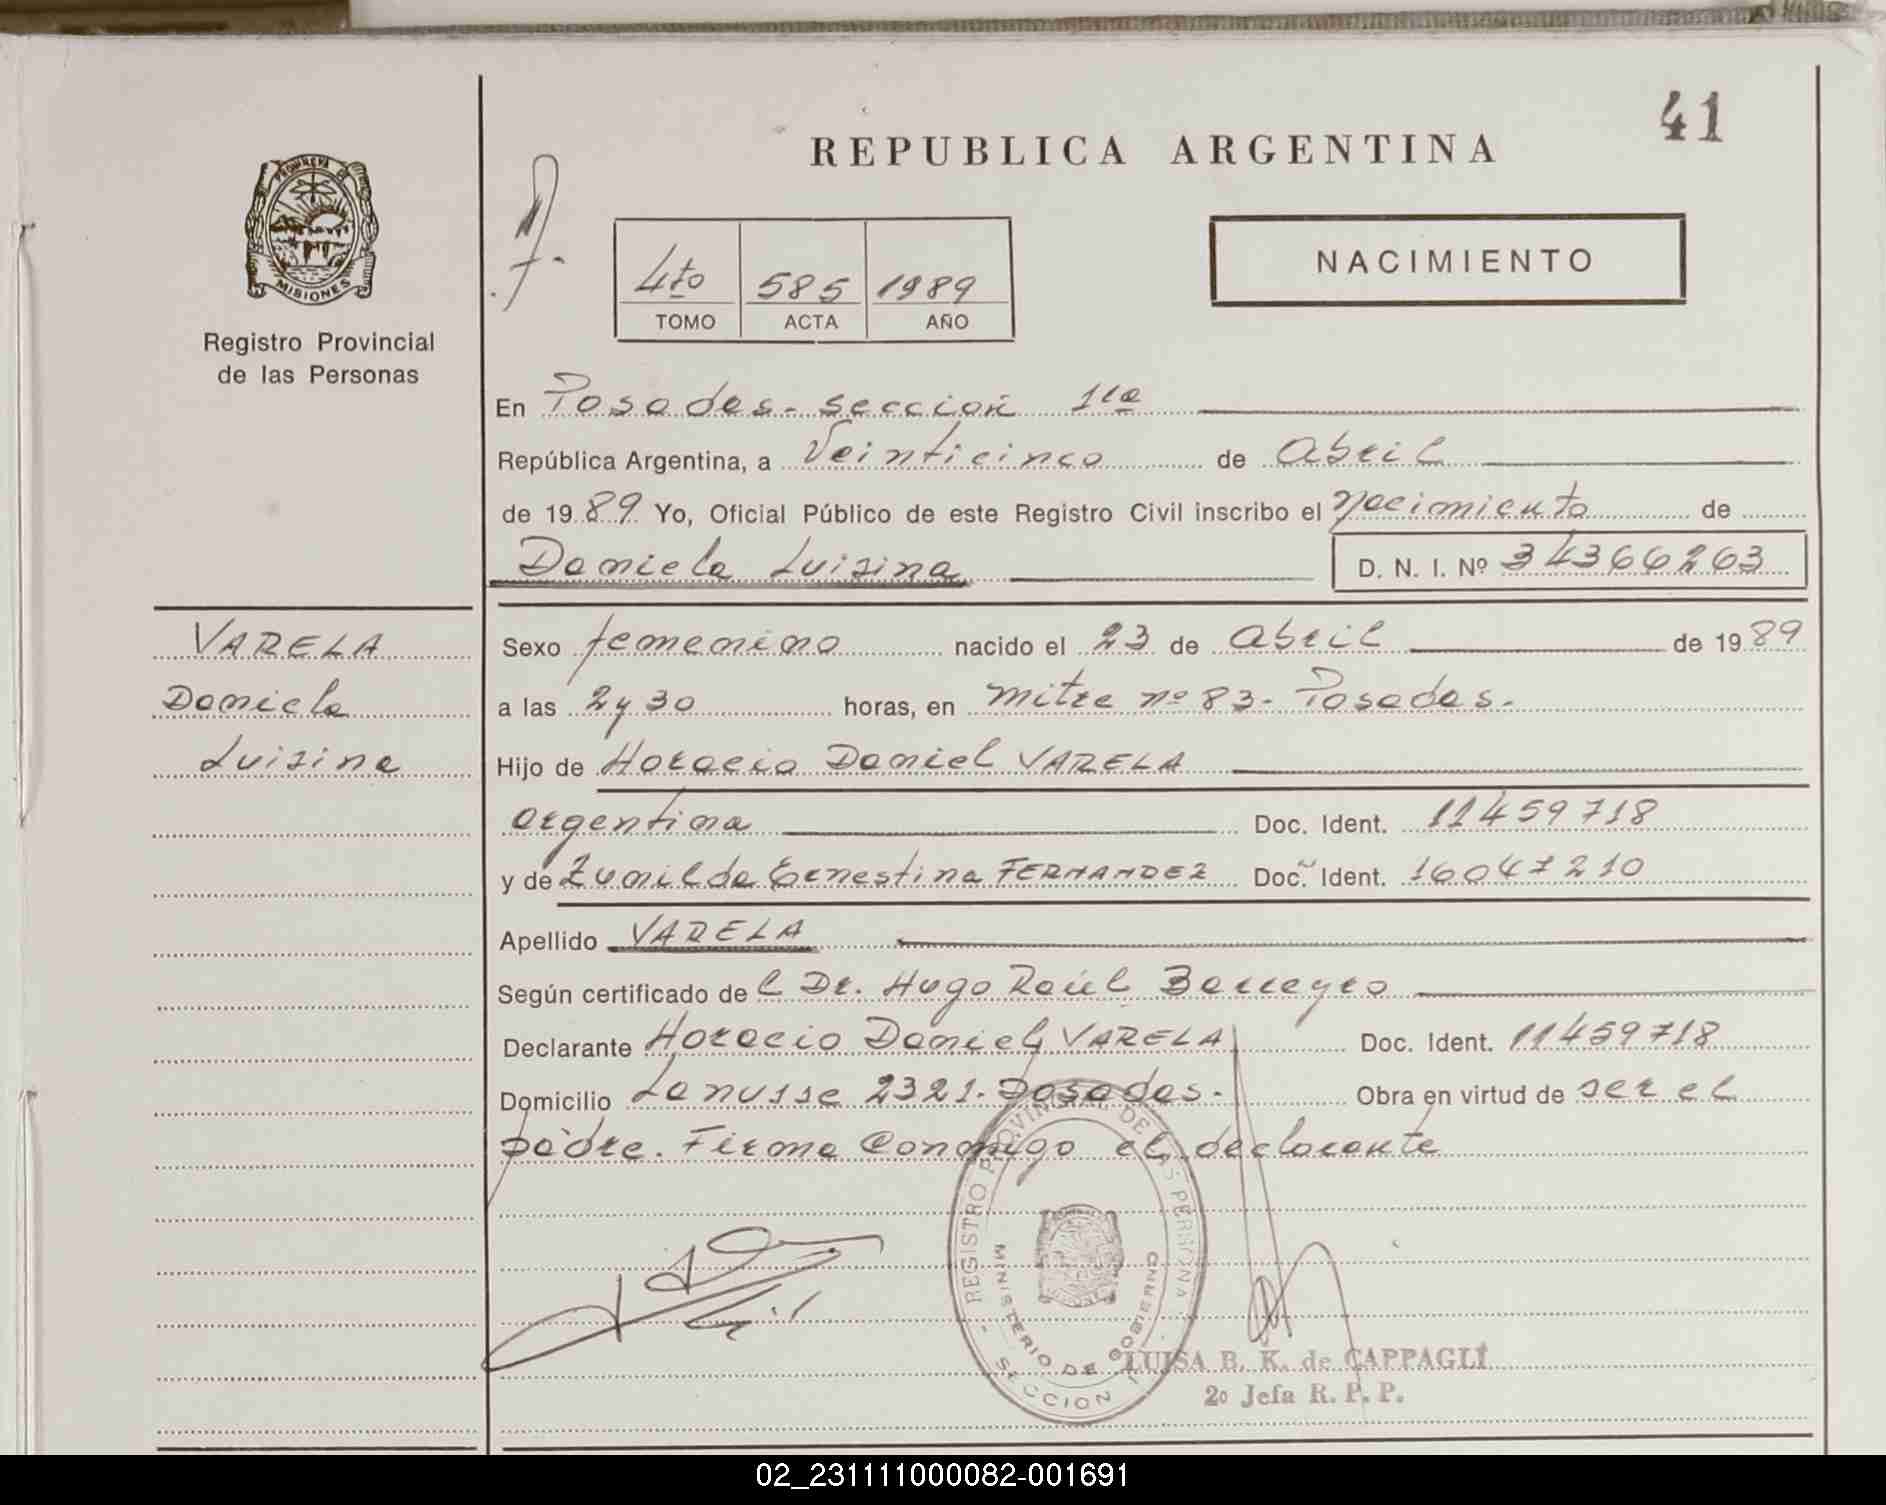 41
REPUBLICA ARGENTINA
PROVINCIA DE
MISIONES
Registro Provincial
de las Personas
4to 585 1989
TOMO ACTA AÑO
NACIMIENTO
En Posadas - sección 1ra
República Argentina, a Veinticinco de Abril
de 1989 Yo, Oficial Público de este Registro Civil inscribo el nacimiento de
Daniela Luisina D. N. I. Nº 34366263
VARELA
Daniela
Luisina
Sexo femenino nacido el 23 de Abril de 1989
a las 2 y 30 horas, en Mitre nº 83 - Posadas.
Hijo de Horacio Daniel VARELA
argentina Doc. Ident. 11459718
y de Zunilda Ernestina FERNANDEZ Doc. Ident. 16047210
Apellido VARELA
Según certificado de l Dr. Hugo Raúl Barreyro
Declarante Horacio Daniel VARELA Doc. Ident. 11459718
Domicilio Lanusse 2321. Posadas. Obra en virtud de ser el
padre. Firma Conmigo el declarante
REGISTRO PROVINCIAL DE LAS PERSONAS
MINISTERIO DE GOBIERNO
SECCION 1
LUISA B. K. de CAPPAGLI
2º Jefa R. P. P.
02_231111000082-001691